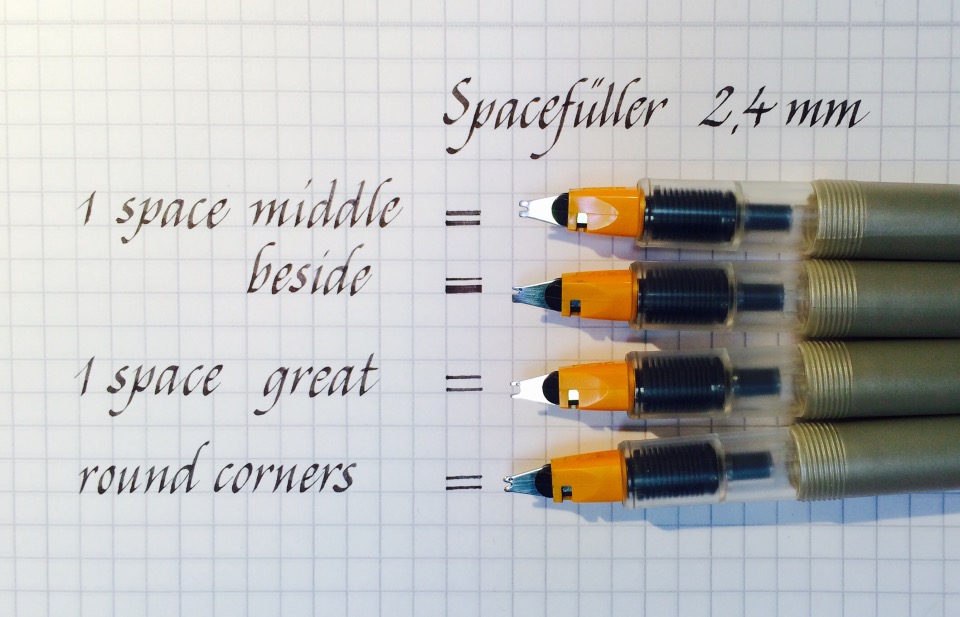 Spacefüller 2,4 mm
1 space middle =
beside =
1 space great =
round corners =